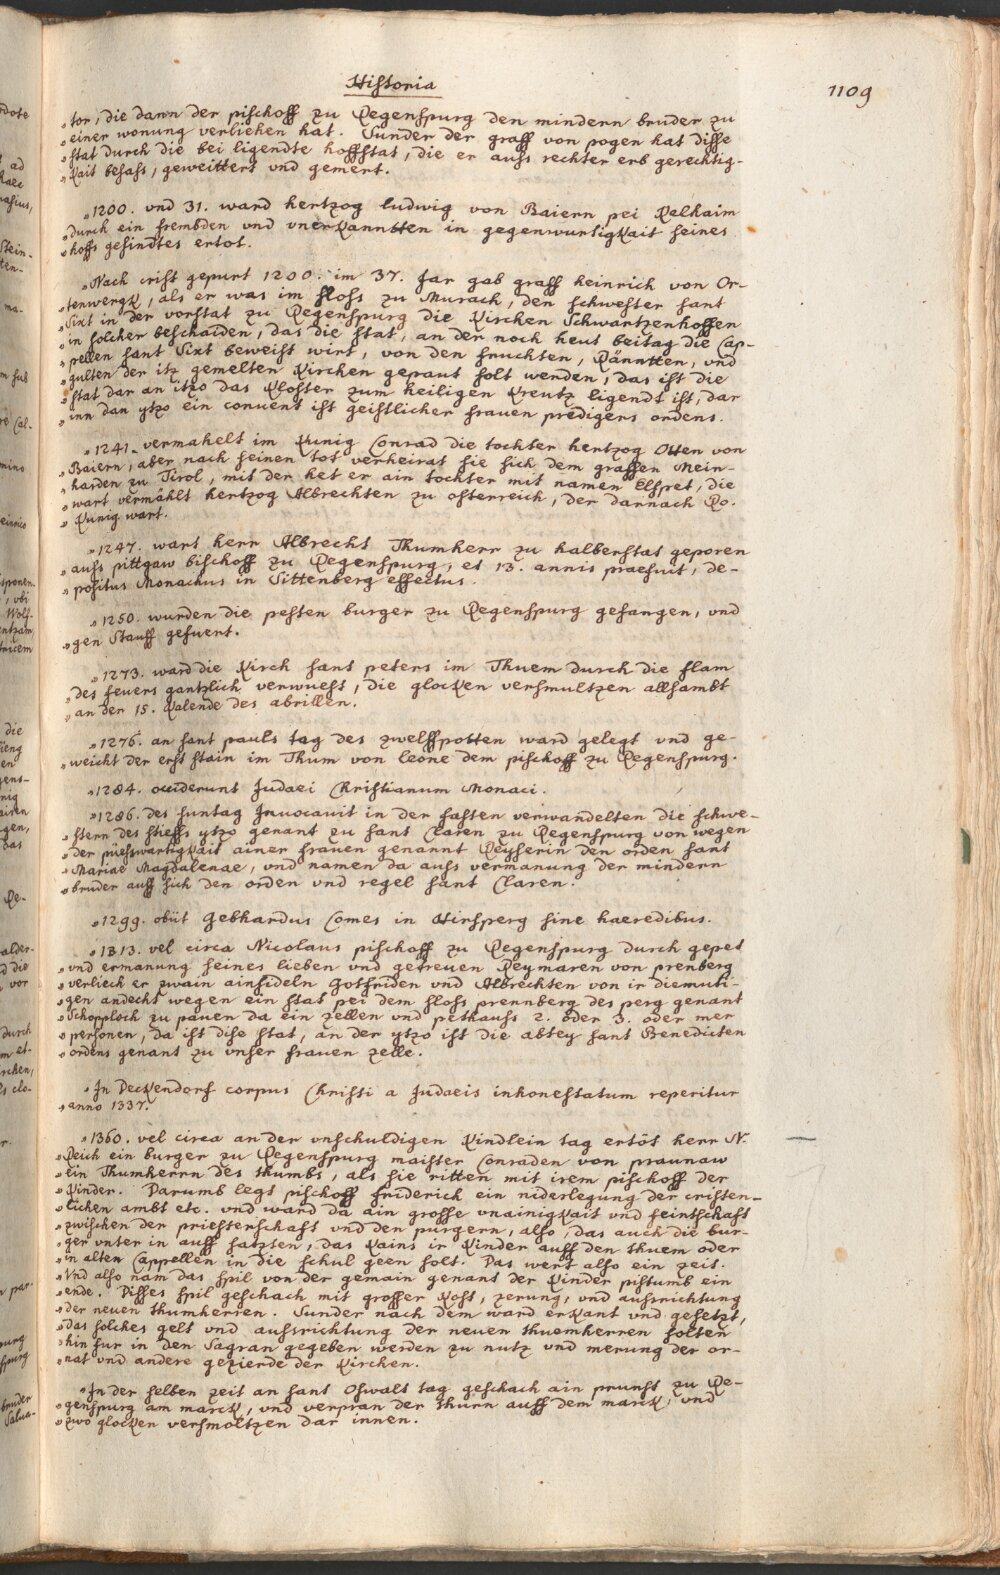 Historia
1109
„tor, die dann der pischoff zu Regenspurg den mindern bruder zu
„einer wonung verliehen hat. Sunder der graff von pogen hat disse
„stat durch die bei ligendte hoffstat, die er auss rechter erb gerechtig-
„kait besass, geweittert vnd gemert.
„1200. vnd 31. ward hertzog ludwig von Baiern pei Kelhaim
„durch ein frembden vnd vnerkanntten in gegenwurtigkait seines
„hoffs gesindtes ertot.
„Nach crist gepurt 1200. im 37. Jar gab graff heinrich von Or-
„tenwergk, als er was im schloss zu Murach, den schwester sant
„Sixt in der vorstat zu Regenspurg die kirchen Schwartzenhoffen
„in solcher beschaiden, das die stat, an der noch heut beitag die Cap-
„pellen sant Sixt beweist wirt, von den fruchten, Ränntten, vnd
„gulten der itz gemelten kirchen gepaut solt werden, das ist die
„stat dar an itzo das kloster zum heiligen kreutz ligendt ist, dar
„inn dan ytzo ein conuent ist geistlicher frauen predigers ordens.
„1241. vermahelt im kunig Conrad die tochter hertzog Otten von
„Baiern, aber nach seinen tot verheirat sie sich dem graffen Mein-
„harden zu Tirol, mit der het er ain tochter mit namen Elspet, die
„wart vermählt hertzog Albrechten zu osterreich, der darnach Ro.
„kunig wart.
„1247. wart herr Albrecht Thumherr zu halberstat geporen
„auss pittgaw bischoff zu Regenspurg, et 13. annis praefuit, de-
„positus Monachus in Sittenberg effectus.
„1250. wurden die pesten burger zu Regenspurg gefangen, vnd
„gen Stauff gefuert.
„1273. ward die kirch sant peters im Thuem durch die flam
„des feuers gantzlich verwuest, die glocken versmultzen allsambt
„an der 15. kalende des abrillen.
„1276. an sant pauls tag des zwelffpotten ward gelegt vnd ge-
„weicht der erst stain im Thum von leone dem pischoff zu Regenspurg.
„1284. occiderunt Judaei Christianum Monaci.
„1286. des suntag Inuocauit in der fasten verwandelten die schwe-
„stern des stiffts ytzo genant zu sant Claren zu Regenspurg von wegen
„der püeswartigkait ainer frauen genannt Reyserin den orden sant
„Mariae Magdalenae, vnd namen da auss vermanung der mindern
„bruder auff sich den orden vnd regel sant Claren.
„1299. obiit Gebhardus Comes in Hirsperg sine haeredibus.
„1313. vel circa Nicolaus pischoff zu Regenspurg durch gepet
„vnd ermanung seines lieben vnd getreuen Reymaren von prenberg
„verliech er zwain ainsideln Gotfriden vnd Albrechten von ir diemuti-
„gen andecht wegen ein stat pei dem sloss prennberg des perg genant
„Schopploch zu pauen da ein zellen vnd pethauss 2. oder 3. oder mer
„personen, da ist dise stat, an der ytzo ist die abtey sant Benedicten
„ordens genant zu vnser frauen zelle.
„In Deckendorf corpus Christi a Judaeis inhonestatum reperitur
„anno 1337.
„1360. vel circa an der vnschuldigen kindlein tag ertöt herr N.
„Reich ein burger zu Regenspurg maister Conraden von praunaw
„ein Thumherrn des thumbs, als sie ritten mit irem pischoff der
„kinder. Darumb legt pischoff friderich ein niderlegung der cristen-
„lichen ambt etc. vnd ward da ain grosse vnainigkait vnd feintschaft
„zwischen der priesterschaft vnd den purgern, also, das auch die bur-
„ger vnter in auff satzten, das kains ir kinder auff den thuem oder
„in alten Cappellen in die schul geen solt. Das wert also ein zeit.
„Vnd also nam das spil von der gemain genant der kinder pistumb ein
„ende. Disses spil geschach mit grosser kost, zerung, vnd aussrichtung
„der neuen thumherren. Sunder nach dem ward erkant vnd gesetzt,
„das solches gelt vnd aussrichtung der neuen thuemherren solten
„hin fur in den Sagran gegeben werden zu nutz vnd merung der or-
„nat vnd andere gezierde der kirchen.
„In der selben zeit an sant Oswalt tag geschach ain prunst zu Re-
„genspurg am marck, vnd verpran der thurn auff dem marck, vnd
„zwo glocken versmoltzen dar innen.